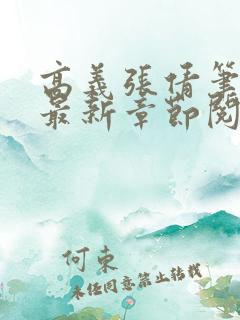 高義張倩筆
最新章節閱
何東
未經同意禁止轉載